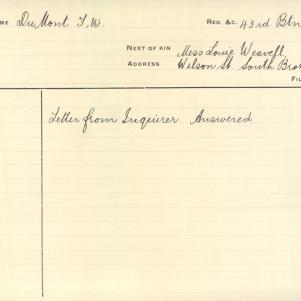 ME DuMont F.W. REG. &C. 43rd Btn
NEXT OF KIN Miss Louie Weavell,
ADDRESS Wilson St. South Bro
FIL
Letter from Inquirer Answered